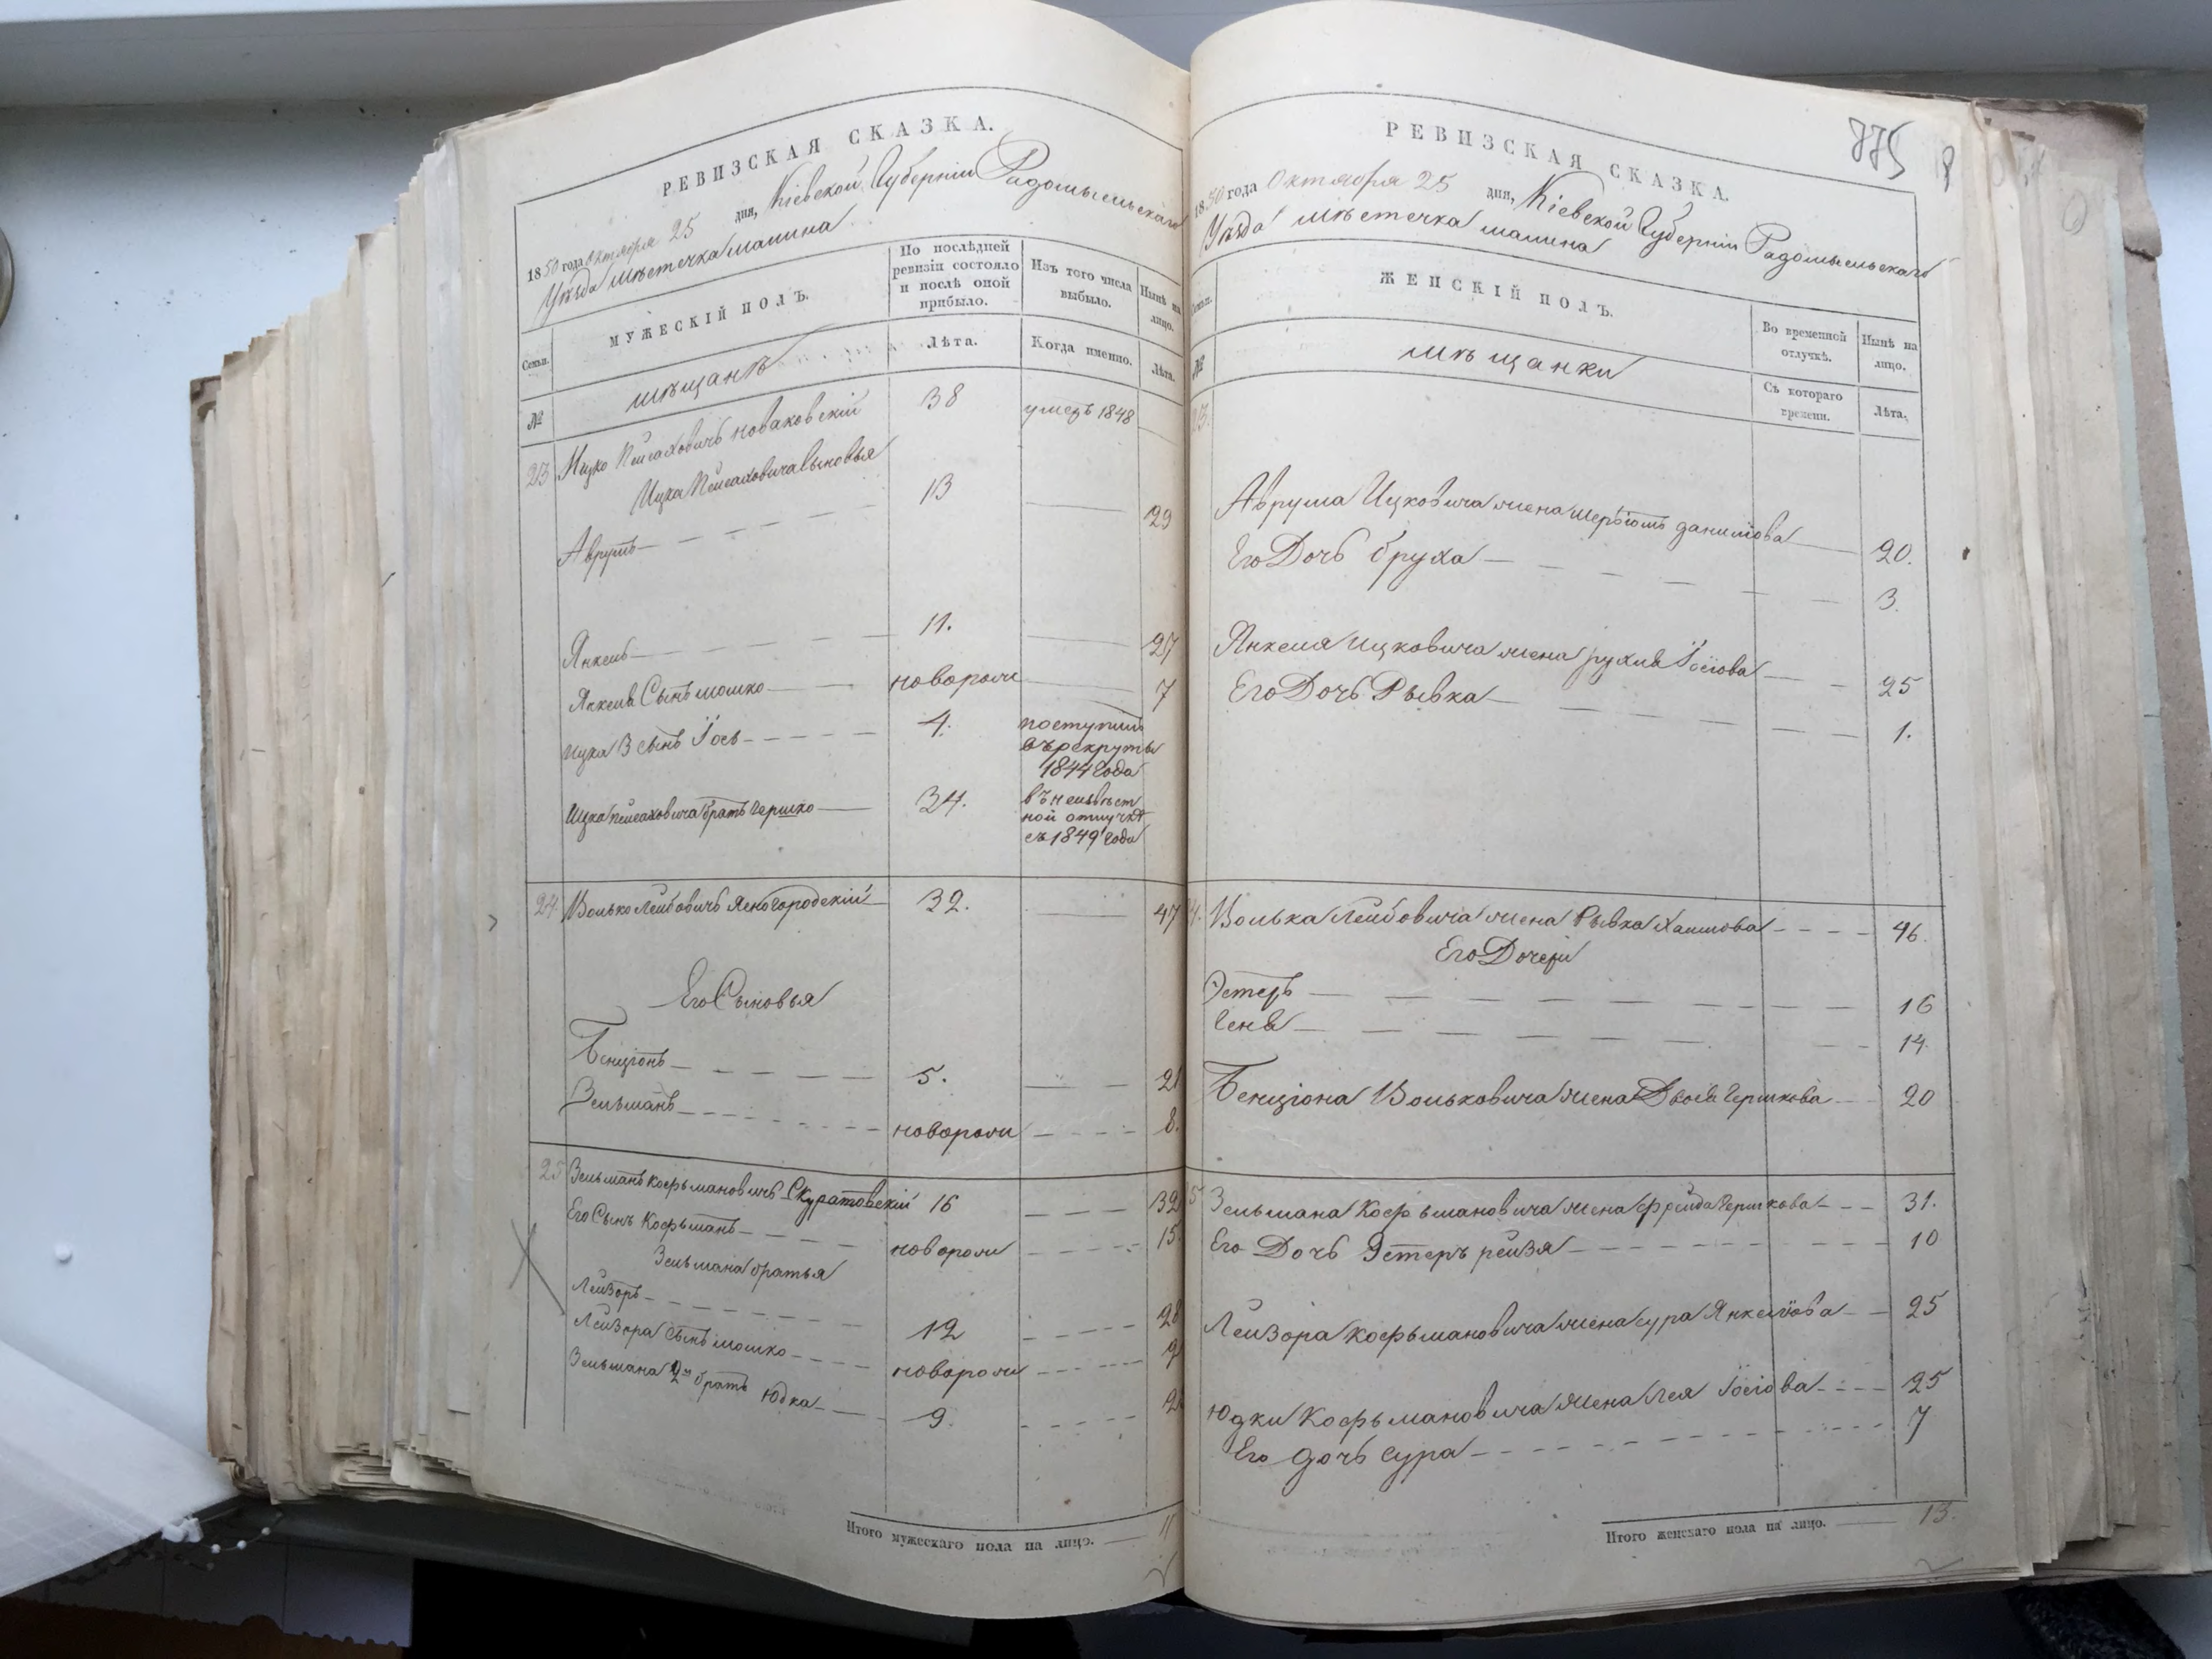 РЕВИЗСКАЯ СКАЗКА.
1850 года Октября 25 дня, Кіевской Губерніи Радомысльскаго
Уѣзда мѣстечка малина
Семьи.
МУЖЕСКІЙ ПОЛЪ.
По послѣдней ревизіи состояло и послѣ оной прибыло.
Изъ того числа выбыло.
Нынѣ на лицо.
№
мѣщанѣ
Лѣта.
Когда именно.
Лѣта.
23 Ицко Пейсаховичъ новаковскій 38 умеръ 1848
Ицка Пейсаховича Сыновья
Аврумъ 13 29
Янкель 11. 27
Янкеля Сынъ мошко новорож 7
Ицка 3 сынъ Іось 4. поступилъ
въ рекруты
1844 Года
Ицка Пейсаховича братъ Гершко 34. въ неизвѣст
ной отлучкѣ
съ 1849 Года
24. Волько Лейбовичъ Ясногородскій 32. 47
Его Сыновья
Бенціонъ 5. 21
Зельманъ новорож 8.
25 Зельманъ Кофьмановичъ Скуратовскій 16 32
Его Сынъ Кофьманъ новорож 15.
Зельмана братья
Лейзоръ 12 28
Лейзора Сынъ мошко новорож
Зельмана 2й братъ Юдка 9.
Итого мужескаго пола на лицо. 11
РЕВИЗСКАЯ СКАЗКА.
775
1850 года Октября 25 дня, Кіевской Губерніи Радомысльскаго
Уѣзда мѣстечка малина
Семьи.
ЖЕНСКІЙ ПОЛЪ.
Во временной отлучкѣ.
Нынѣ на лицо.
№
мѣщанки
Съ котораго времени.
Лѣта.
23.
Аврума Ицковича жена данилова 20.
Его Дочь бруха 3.
Янкеля Ицковича жена рухля Іосіова 25
Его Дочь Рывка 1.
4. Волька Лейбовича жена Рывка Хаимова 46.
Его Дочери
Эстеръ 16
Геня 14
Бенціона Вольковича жена Двося Гершкова 20
5 Зельмана Кофьмановича жена фрейда Гершкова 31.
Его Дочь Эстеръ рейзя 10
Лейзора Кофьмановича жена сура Янкеліова 25
Юдки Кофьмановича жена Лея Іосіова 25
Его дочь сура 7
Итого женскаго пола на лицо. 13.